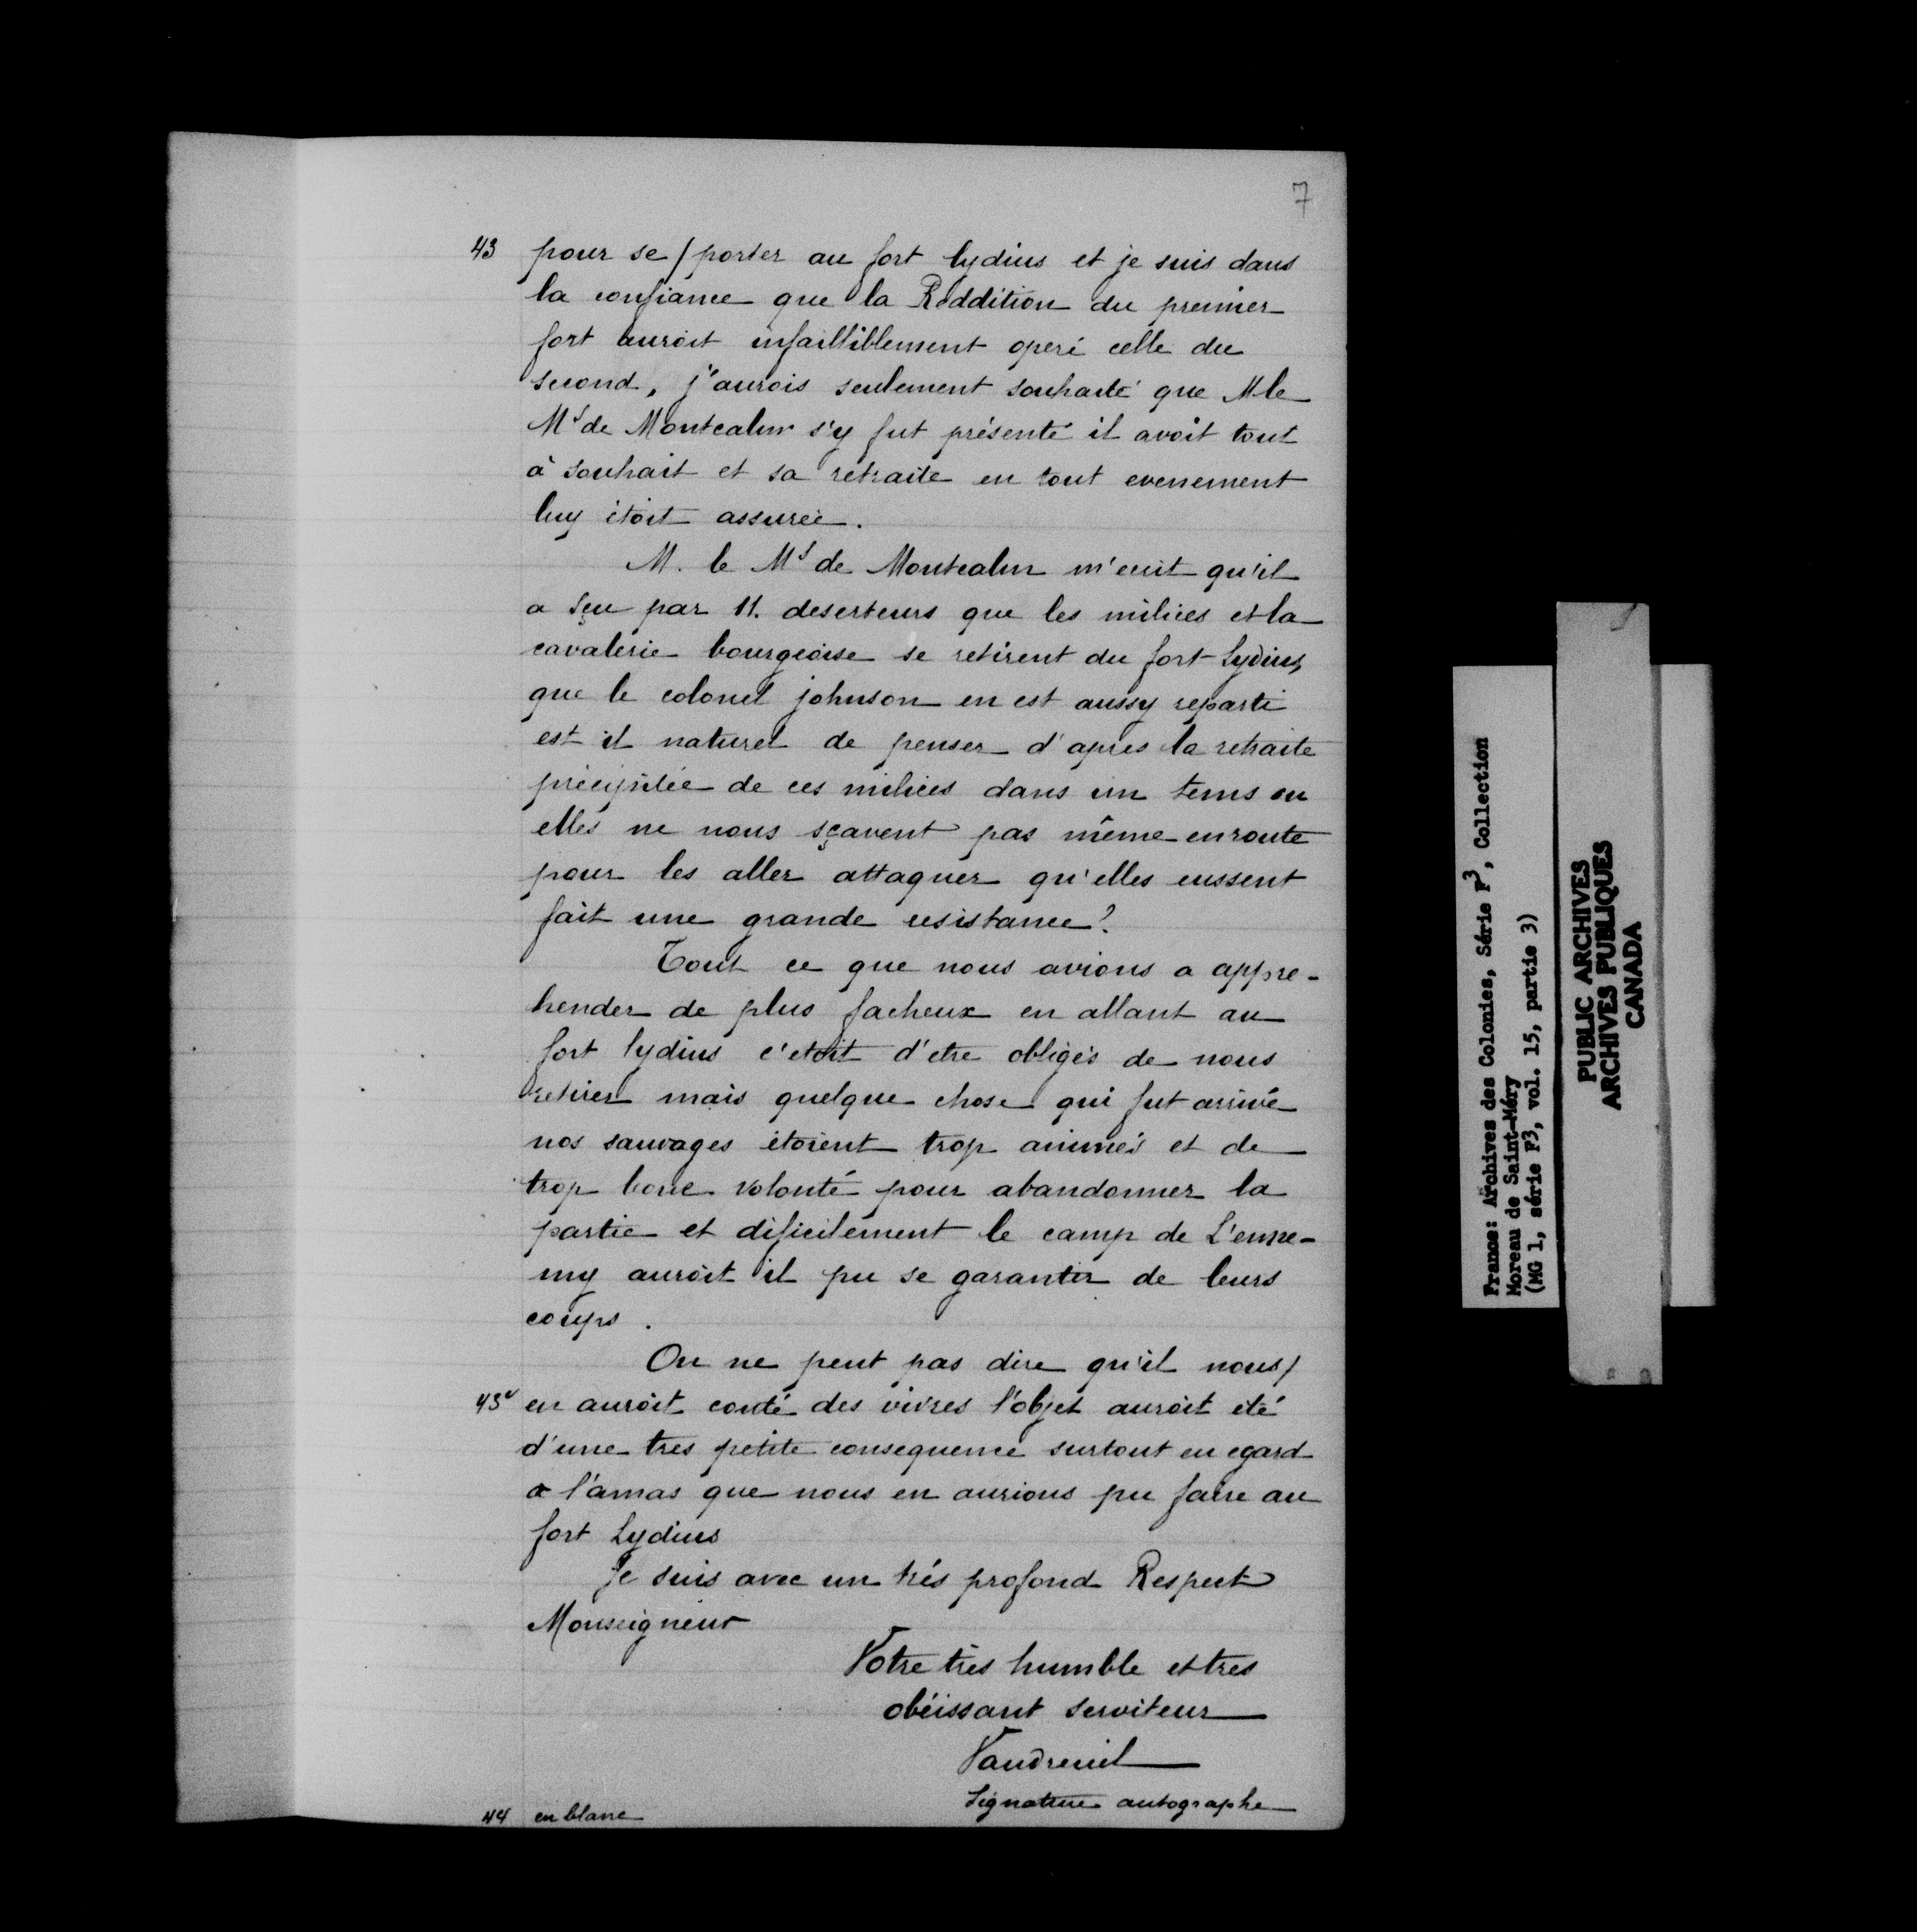 7
43 pour se / porter au fort lydius et je suis dans
la confiance que la Reddition du premier
fort auroit infailliblement operé celle du
second, j'aurois seulement souhaité que M le
Mis de Montcalm s'y fut présenté il avoit tout
à souhait et sa retraite en tout evenement
luy étoit assurée.
M. le Mis de Montcalm m'ecrit qu'il
a sçu par 11. deserteurs que les milices et la
cavalerie bourgeoise se retirent du fort Lydius,
que le colonel johnson en est aussy reparti
est il naturel de penser d'apres la retraite
précipitée de ces milices dans un tems ou
elles ne nous sçavent pas même en route
pour les aller attaquer qu'elles eussent
fait une grande resistance?
Tout ce que nous avions a appre-
hender de plus facheux en allant au
fort lydius c'etoit d'etre obligés de nous
retirer mais quelque chose qui fut arrivé
nos sauvages étoient trop animés et de
trop bone volonté pour abandonner la
partie et dificilement le camp de L'enne-
my auroit il pu se garantir de leurs
coups.
On ne peut pas dire qu'il nous /
43v en auroit couté des vivres l'objet auroit eté
d'une tres petite consequence surtout eu egard
a l'amas que nous en aurions pu faire au
fort Lydius
Je suis avec un trés profond Respect
Monseigneur
Votre très humble et tres
obéissant serviteur
Vaudreuil
Signature autographe
44 en blanc
France: Archives des Colonies, Série F3, Collection
Moreau de Saint-Méry
(MG 1, série F3, vol. 15, partie 3)
PUBLIC ARCHIVES
ARCHIVES PUBLIQUES
CANADA